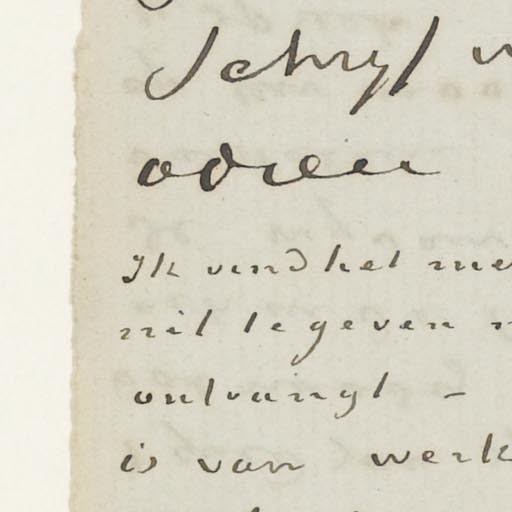 Schryf
adres
Ik vind het
uit te geven
ontvangt –
is van werk